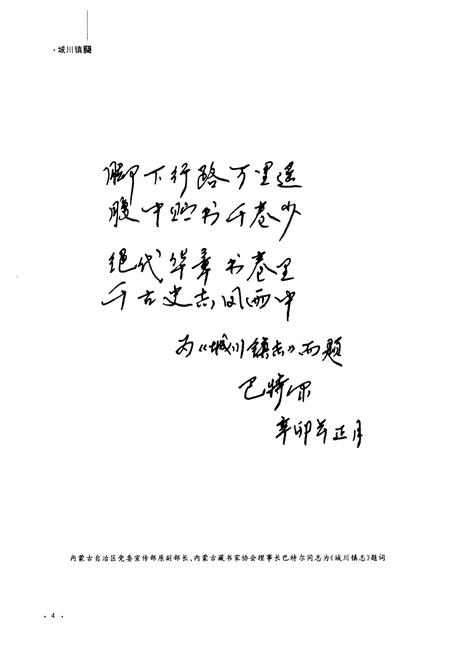 ·城川镇志
脚下行路万里遥
腹中贮书千卷少
绝代华章书卷里
千古史志风雨中
为《城川镇志》而题
巴特尔
辛卯年正月
内蒙古自治区党委宣传部原副部长、内蒙古藏书家协会理事长巴特尔同志为《城川镇志》题词
·4·